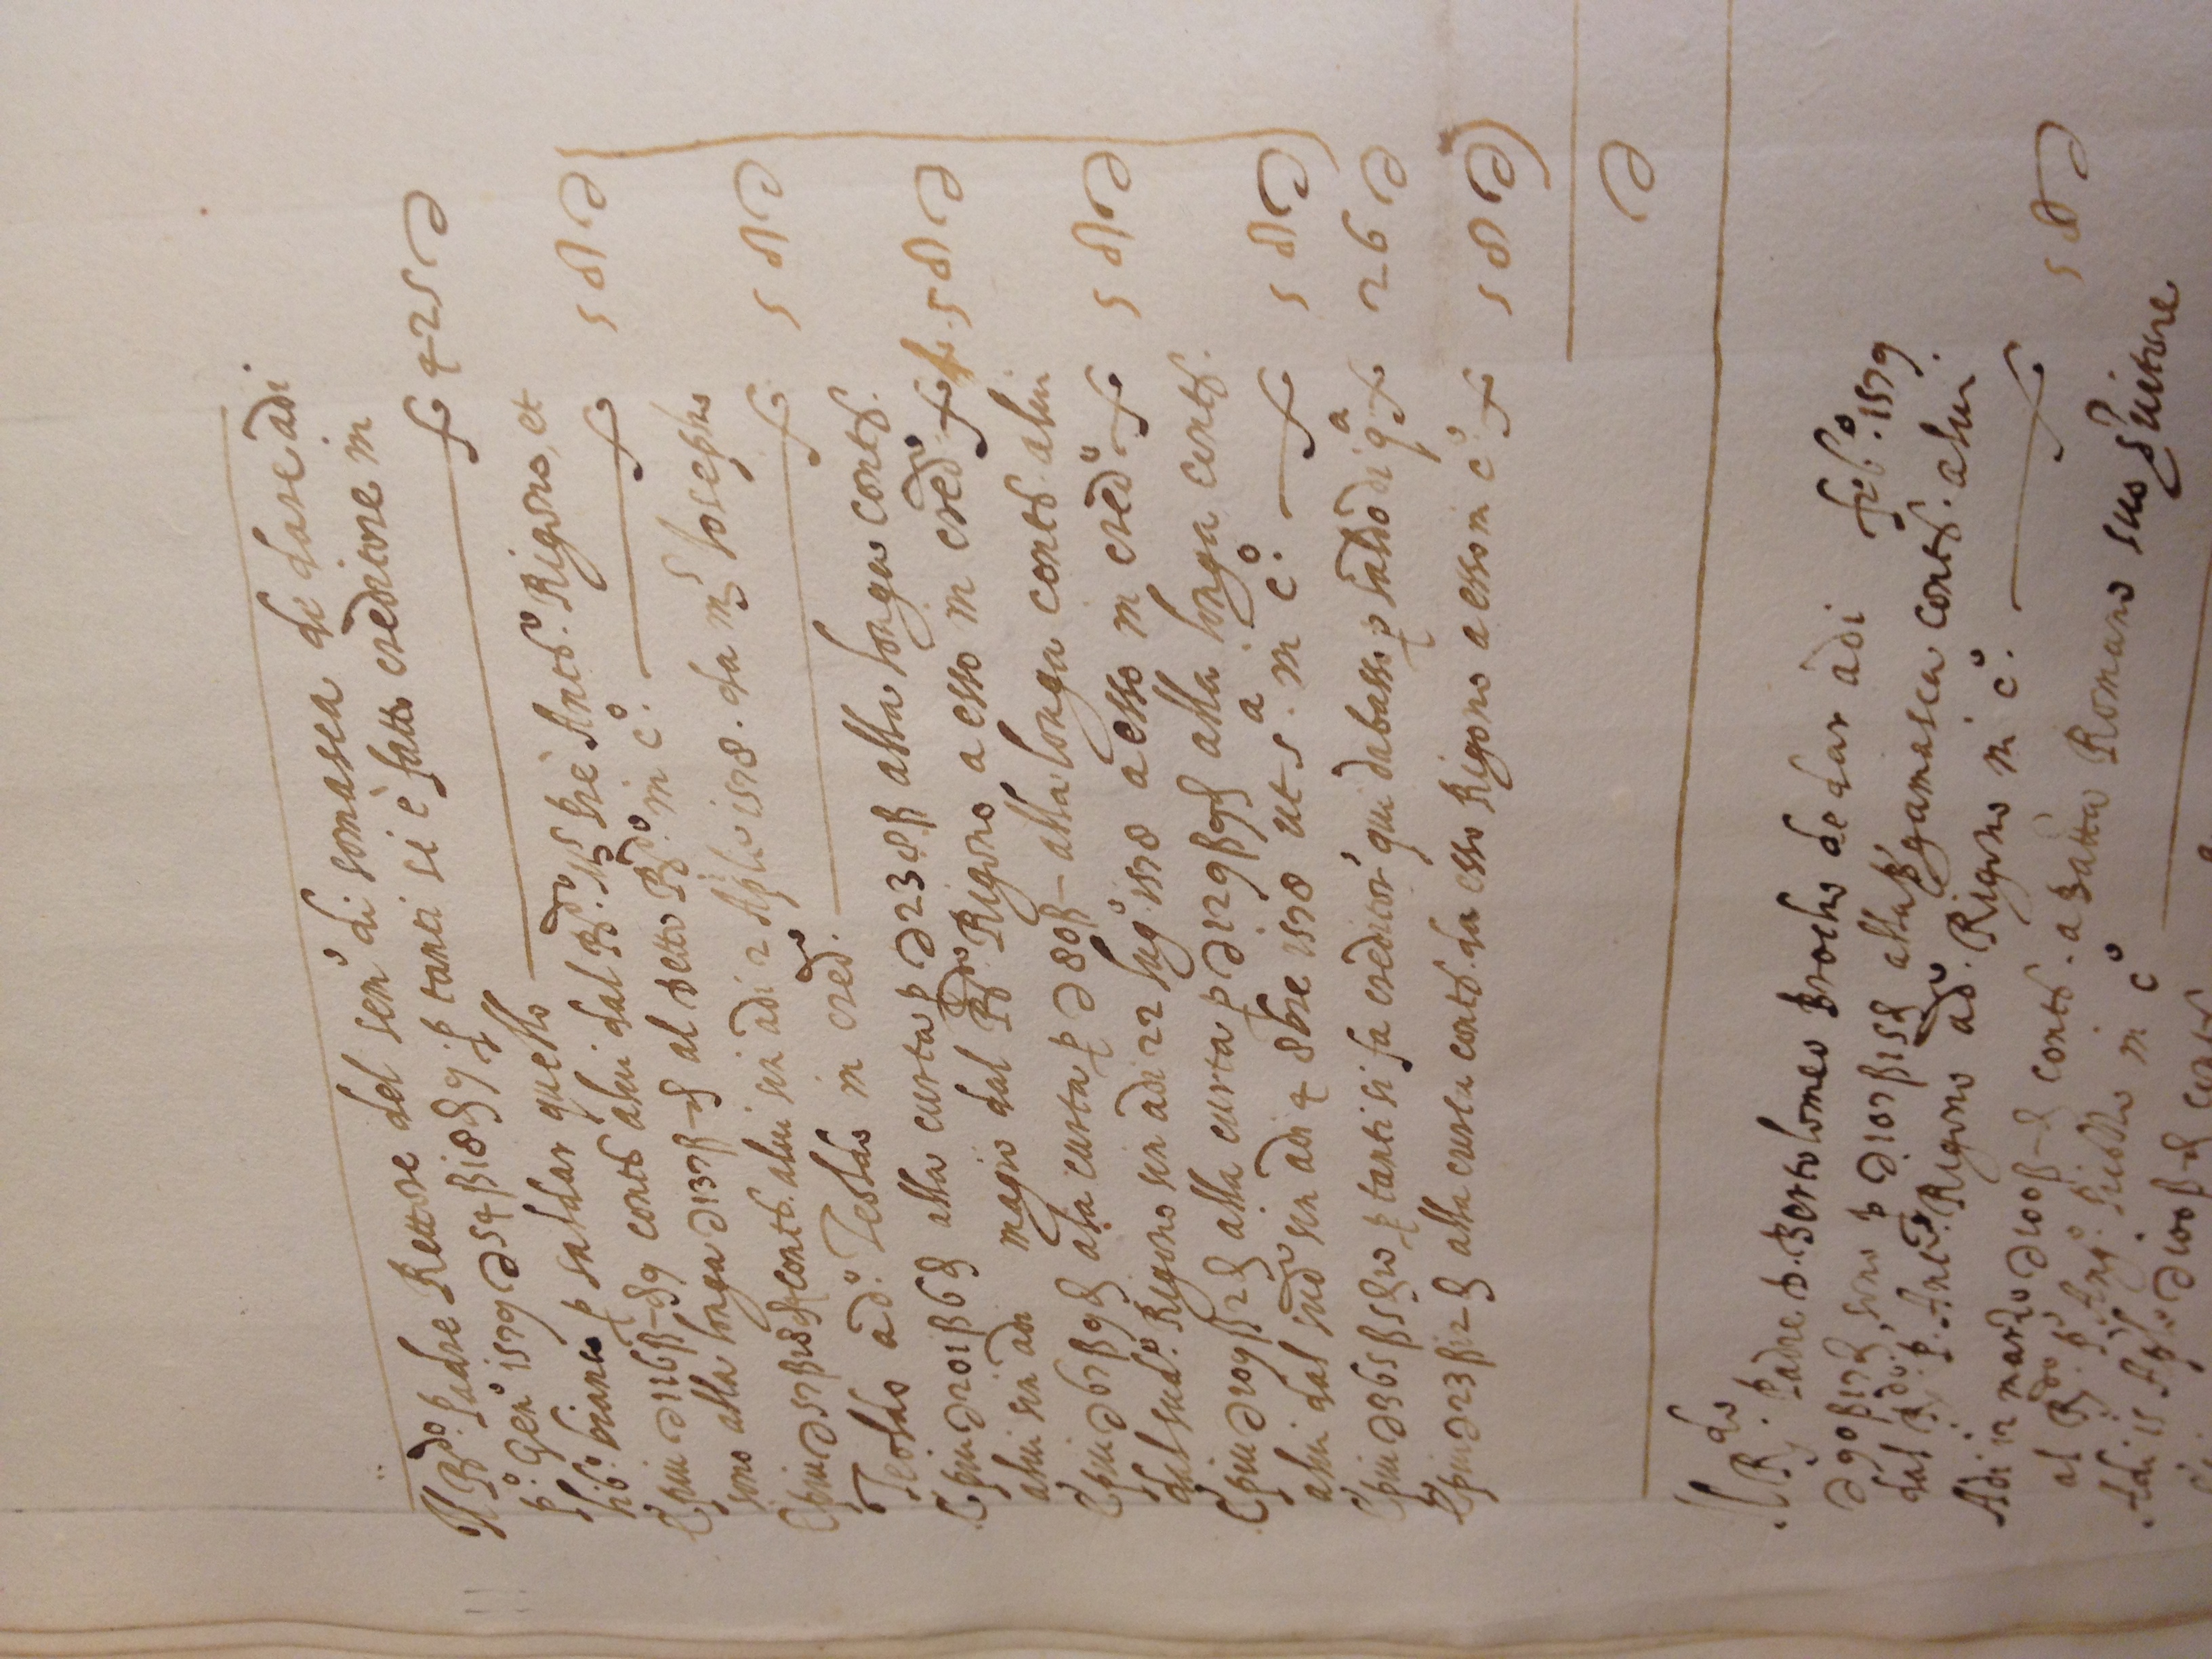 Il Rdo. padre Rettore del sem.o di somasca de dare adi
p.o Gen.o 1579 ∂ 54 ß 18 ₰ 9 p tanti si è fatto creditore in
lib.o bianco p saldar quello — f 425 ∂
E piu ∂ 116 ß - ₰ 9 contti a lui dal Rdo. ms pre Antto. Rigono, et
sono alla longa ∂ 137 ß - ₰ al detto Rdo. in c.o — f 58 ∂
E piu ∂ 57 ß 18 ₰ 4 contti a lui sin adi 2 Aple 1578 . da m.s Joseppho
Teoldo ad.o Teoldo in cred.o — f 58 ∂
E piu ∂ 201 ß 6 ₰ alla curta p ∂ 238 ß alla longa contti.
a lui sin adi magio dal Rdo. Rigono a esso in cred.o f 58 ∂
E piu ∂ 67 ß 9 ₰ ala curta p ∂ 80 ß - alla longa contti. a lui
dal sud.o Rigono sin adi 22 lug.o 1578 a esso in cred.o f 58 ∂
E piu ∂ 109 ß 2 ₰ alla curta p ∂ 129 ß 9 ₰ alla longa contti.
a lui dal sud.o sin adi 4 8bre 1578 ut s.a in c.o — f 58 ∂
E piu ∂ 365 ß 5 ₰ 10 p tanti si fa creditor qui dabasso p saldo di q.a f 26 ∂
E piu ∂ 23 ß 12 - ₰ alla curta contti. da esso Rigono a esso in c.o f 58 ∂
∂
Il Rdo. padre p. Bertolomeo Brocho de dar adi feb.o 1579
∂ 90 ß 17 ₰, sono p ∂ 107 ß 15 ₰ alla bergamasca contti. a lui
dal Rdo. p. Ant.o Rigono ad.o Rigono in c.o — f 58 ∂
Adi 12 marzo ∂ 100 ß - ₰ contti. a Batta Romano suo servitore
al Rdo. p. Ang.o in c.o
Adi 15 Aple ∂ 100 ß ₰ contti